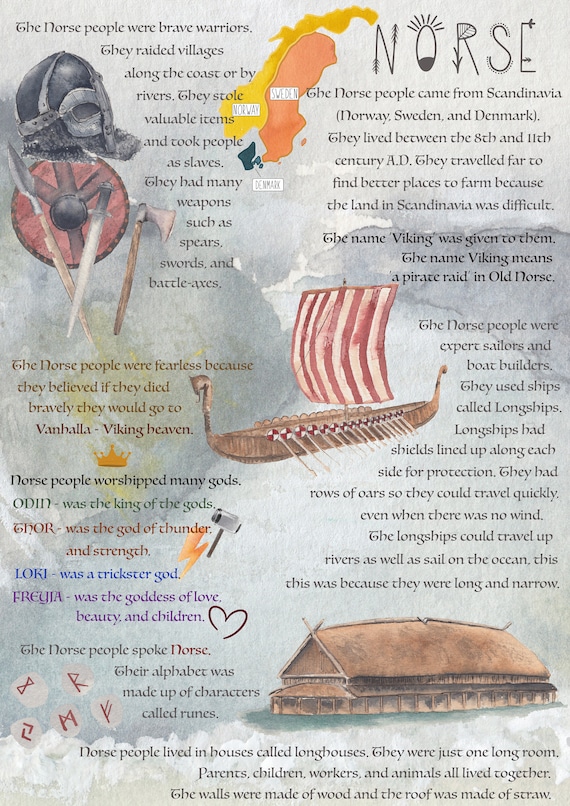 NORSE
The Norse people were brave warriors.
They raided villages
along the coast or by
rivers. They stole
valuable items
and took people
as slaves.
They had many
weapons
such as
spears,
swords, and
battle-axes.
NORWAY
SWEDEN
DENMARK
The Norse people came from Scandinavia
(Norway, Sweden, and Denmark).
They lived between the 8th and 11th
century A.D. They travelled far to
find better places to farm because
the land in Scandinavia was difficult.
The name 'Viking' was given to them.
The name Viking means
'a pirate raid' in Old Norse.
The Norse people were
expert sailors and
boat builders.
They used ships
called Longships.
Longships had
shields lined up along each
side for protection. They had
rows of oars so they could travel quickly,
even when there was no wind.
The longships could travel up
rivers as well as sail on the ocean, this
this was because they were long and narrow.
The Norse people were fearless because
they believed if they died
bravely they would go to
Vanhalla - Viking heaven.
Norse people worshipped many gods.
ODIN - was the king of the gods.
THOR - was the god of thunder
and strength.
LOKI - was a trickster god.
FREYJA - was the goddess of love,
beauty, and children.
The Norse people spoke Norse.
Their alphabet was
made up of characters
called runes.
ᛞ ᚱ
ᛃ ᛗ ᚠ
Norse people lived in houses called longhouses. They were just one long room.
Parents, children, workers, and animals all lived together.
The walls were made of wood and the roof was made of straw.